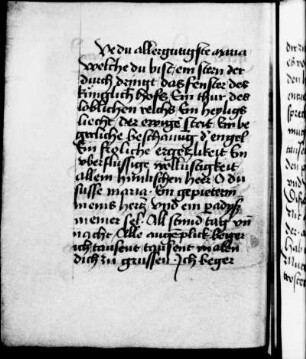 O du aller gnugste maria
welche du bist ein stern der
durch dringt das fenster des
küniglich hofs Ein thür des
loblichen reichs Ein heyligs
liecht der ewige stat Ein be
gerliche beschauug d' engel
Ein froliche ergetzlikeit Ein
vberflüssige wollustigkeit
allem himlischen heer O du
süsse maria Ein gepieterin
meins hertz vnd ein padyß
meiner sel All stund tag vn̄
nacht Alle augeplick beger
ich tausent tausent maln
dich zu grussen Ich beger